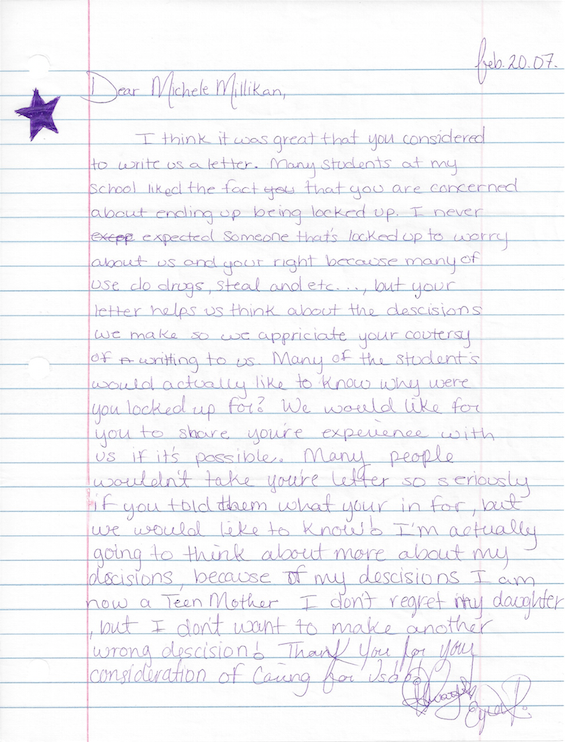 feb. 20. 07.
Dear Michele Millikan,
I think it was great that you considered
to write us a letter. Many students at my
school liked the fact you that you are concerned
about ending up being locked up. I never
excep expected someone that's locked up to worry
about us and your right because many of
use do drugs, steal and etc..., but your
letter helps us think about the descisions
we make so we appriciate your coutersy
of writting to us. Many of the student's
would actually like to know why were
you locked up for? We would like for
you to share you're experience with
us if it's possible. Many people
wouldn't take you're letter so seriously
if you told them what your in for, but
we would like to know! I'm actually
going to think about more about my
descisions, because of my descisions I am
now a Teen Mother I don't regret my daughter
, but I don't want to make another
wrong descision! Thank you for your
consideration of Caring for Us!